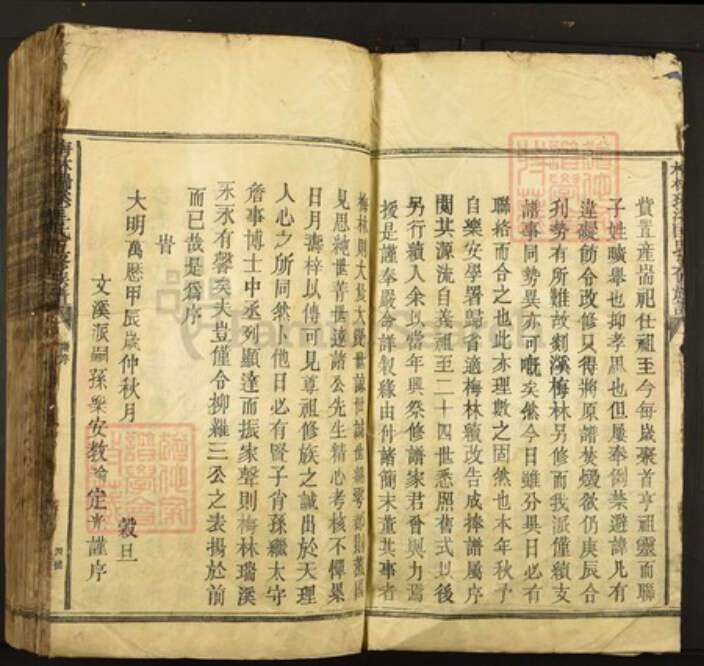 費置産耑祀仕祖至今每歲聚首亨祖靈而聯
子姓曠舉也抑孝思也但屢奉例禁避諱凡有
違礙飭令改修只得將原譜焚燬欲仍庚辰合
刋勢有所難故剡溪梅林另修而我派僅續支
譜事同勢異亦可嘅矣然今日雖分異日必有
聯絡而合之也此亦理數之固然也本年秋予
自樂安學署歸省適梅林續改告成捧譜屬序
閱其源流自義祖至二十四世悉照舊式以後
另行續人余以當年與祭修譜家君晉與力焉
援是謹奉嚴命詳製緣由付諸簡末董其事者
梅林則大
見思純世菁世遠諸公先生精心考核不憚累
日月壽梓以傳可見尊祖修族之誠出於天理
人心之所同然卜他日必有賢子肖孫繼太守
詹事博士中丞列顯達而振家聲則梅林瑞溪
永永有馨矣夫豈僅令抑雞三公之表揚於前
而已哉是爲序
旹
大明萬曆甲辰歲仲秋月 穀旦
文溪派嗣孫樂安教諭定 謹序